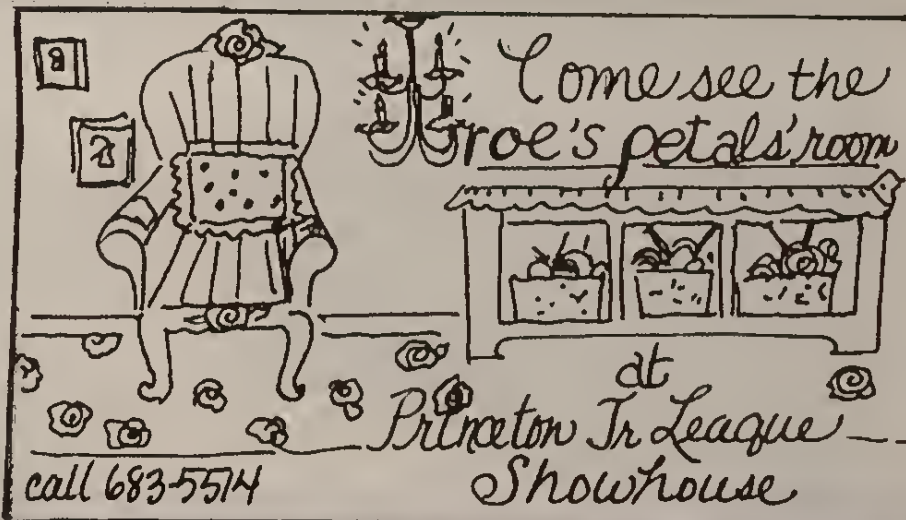 Come see the
roe's petals' room
at
Princeton Jr League
Showhouse
call 683-5514